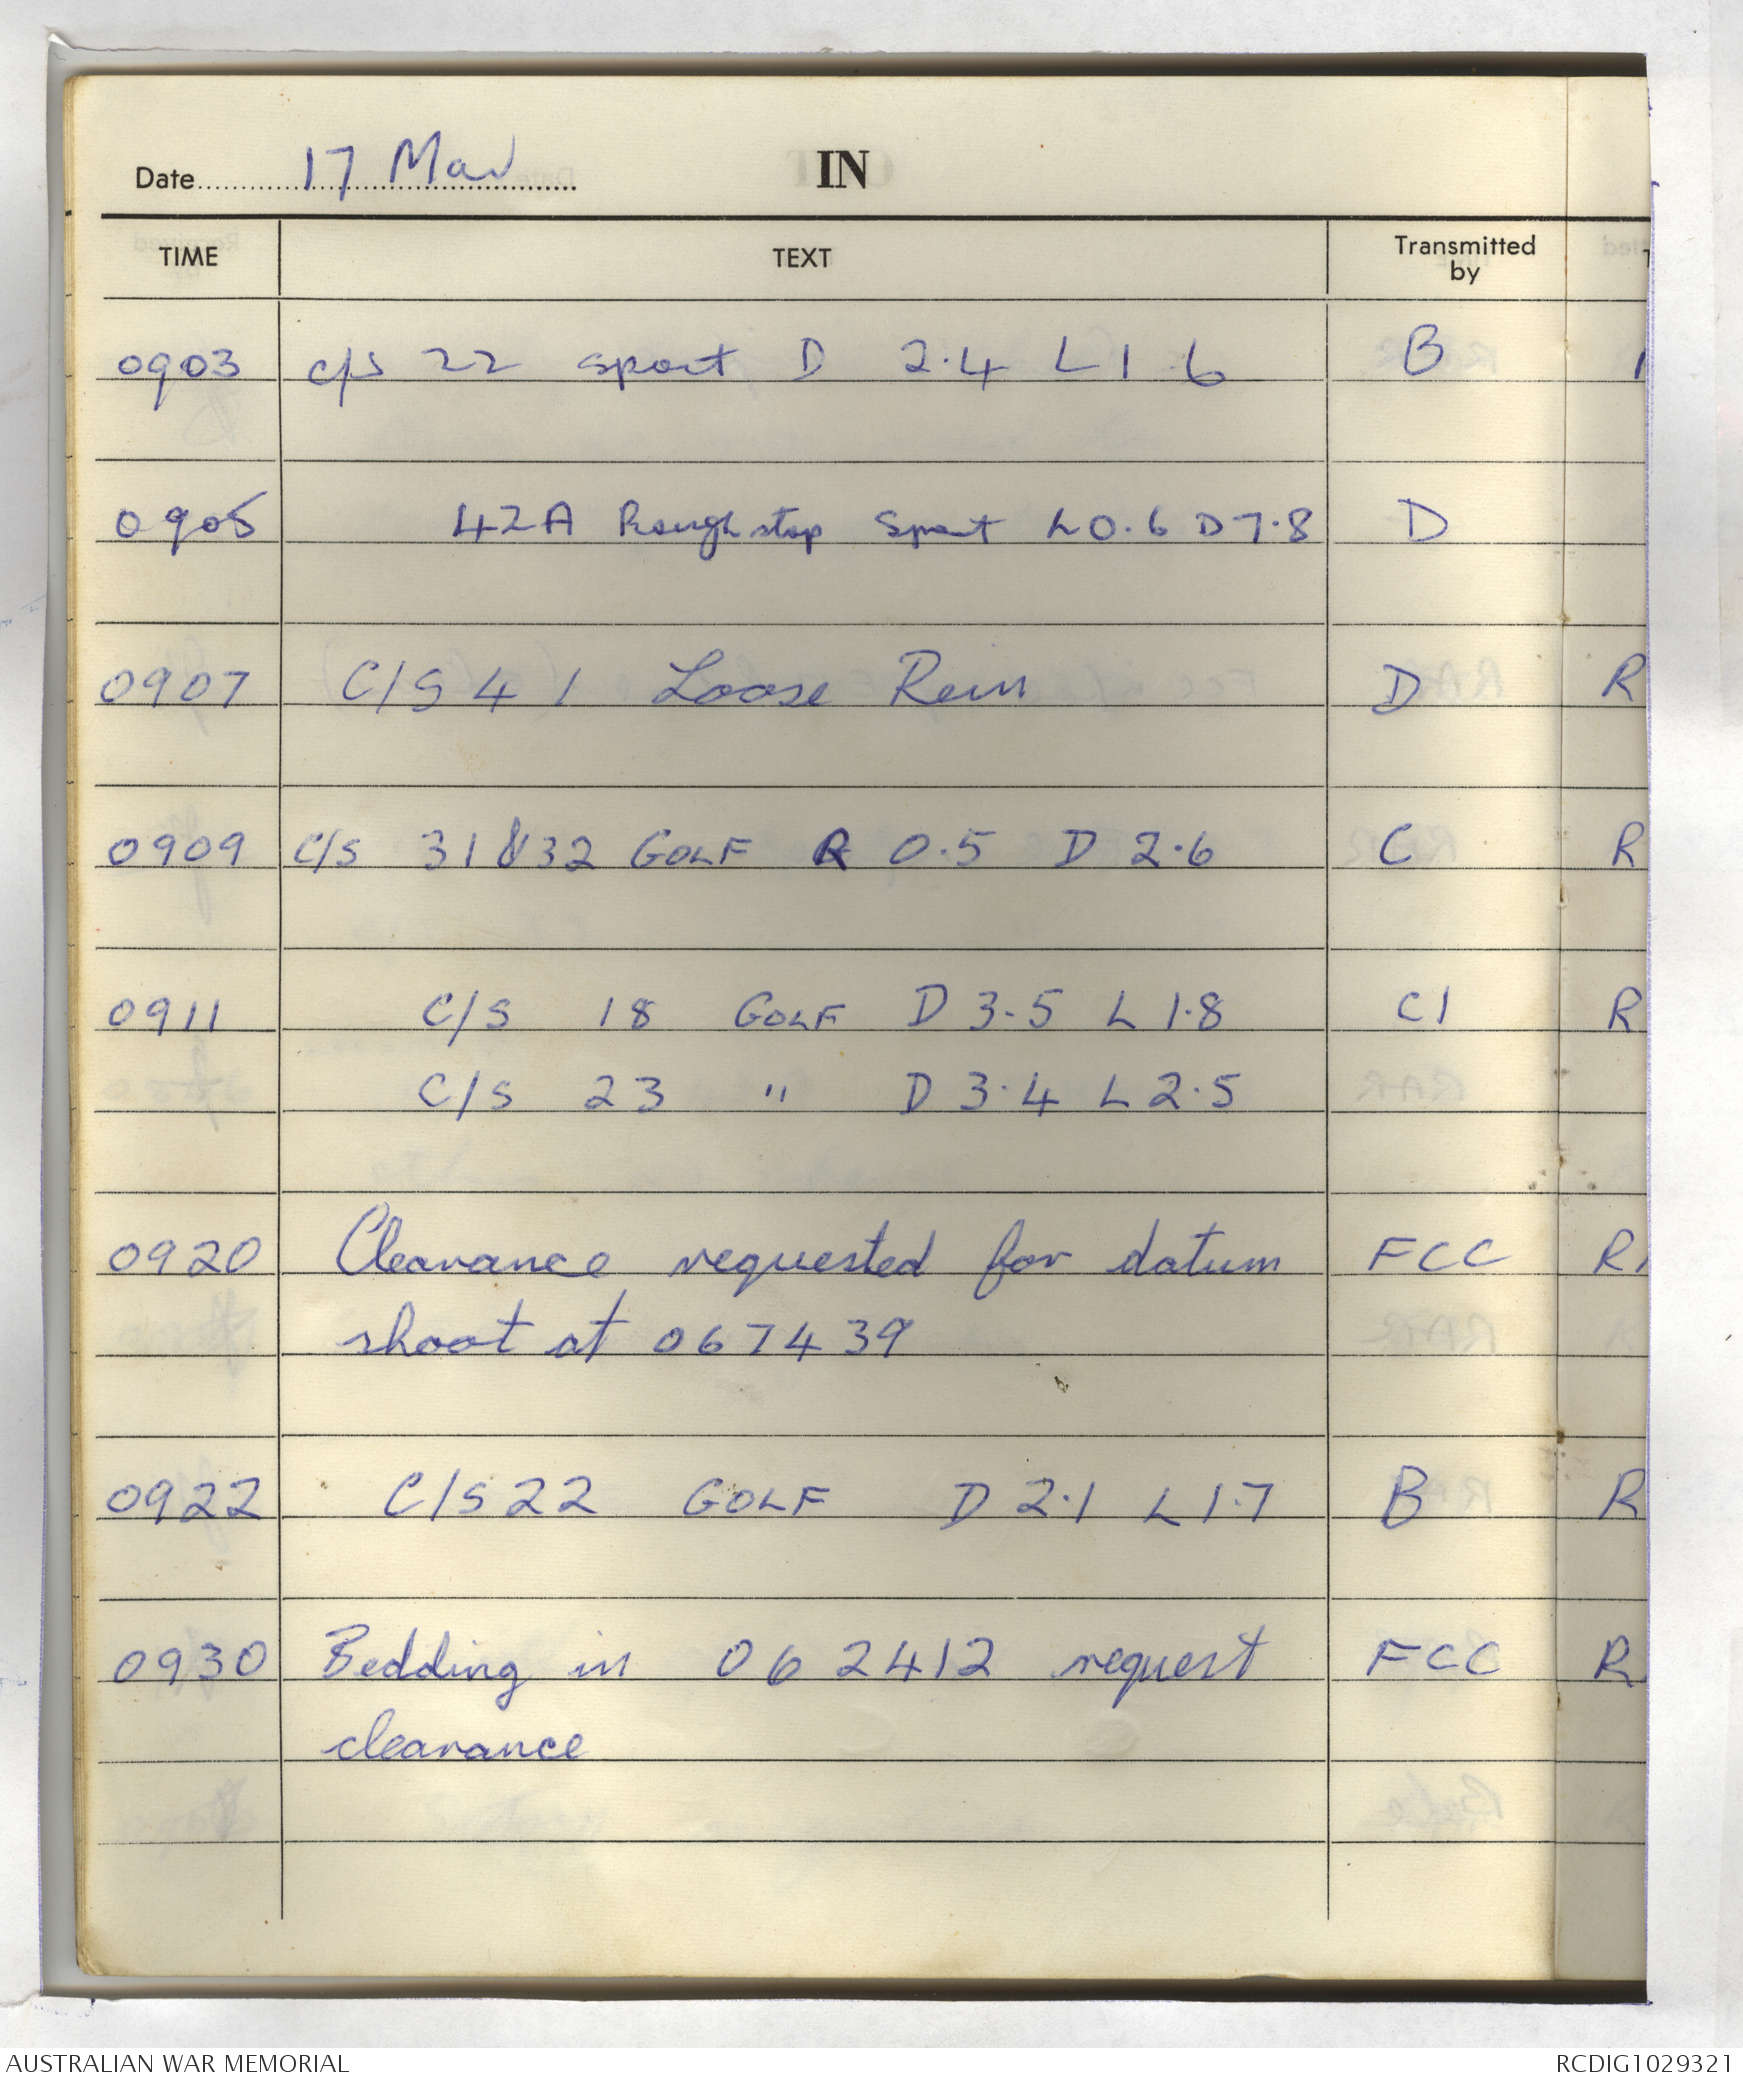 Date 17 Mar IN
TIME TEXT Transmitted by
0903 c/s 22 sport D 2.4 L 1 6 B
0905 42A Rough stop Sport L 0.6 D 7.8 D
0907 C/S 41 Loose Rein D R
0909 C/S 31 & 32 GOLF R 0.5 D 2.6 C R
0911 C/S 18 GOLF D 3.5 L 1.8 C1 R
C/S 23 " D 3.4 L 2.5
0920 Clearance requested for datum FCC R
shoot at 067439
0922 C/S 22 GOLF D 2.1 L 1.7 B R
0930 Bedding in 062412 request FCC R
clearance
AUSTRALIAN WAR MEMORIAL RCDIG1029321